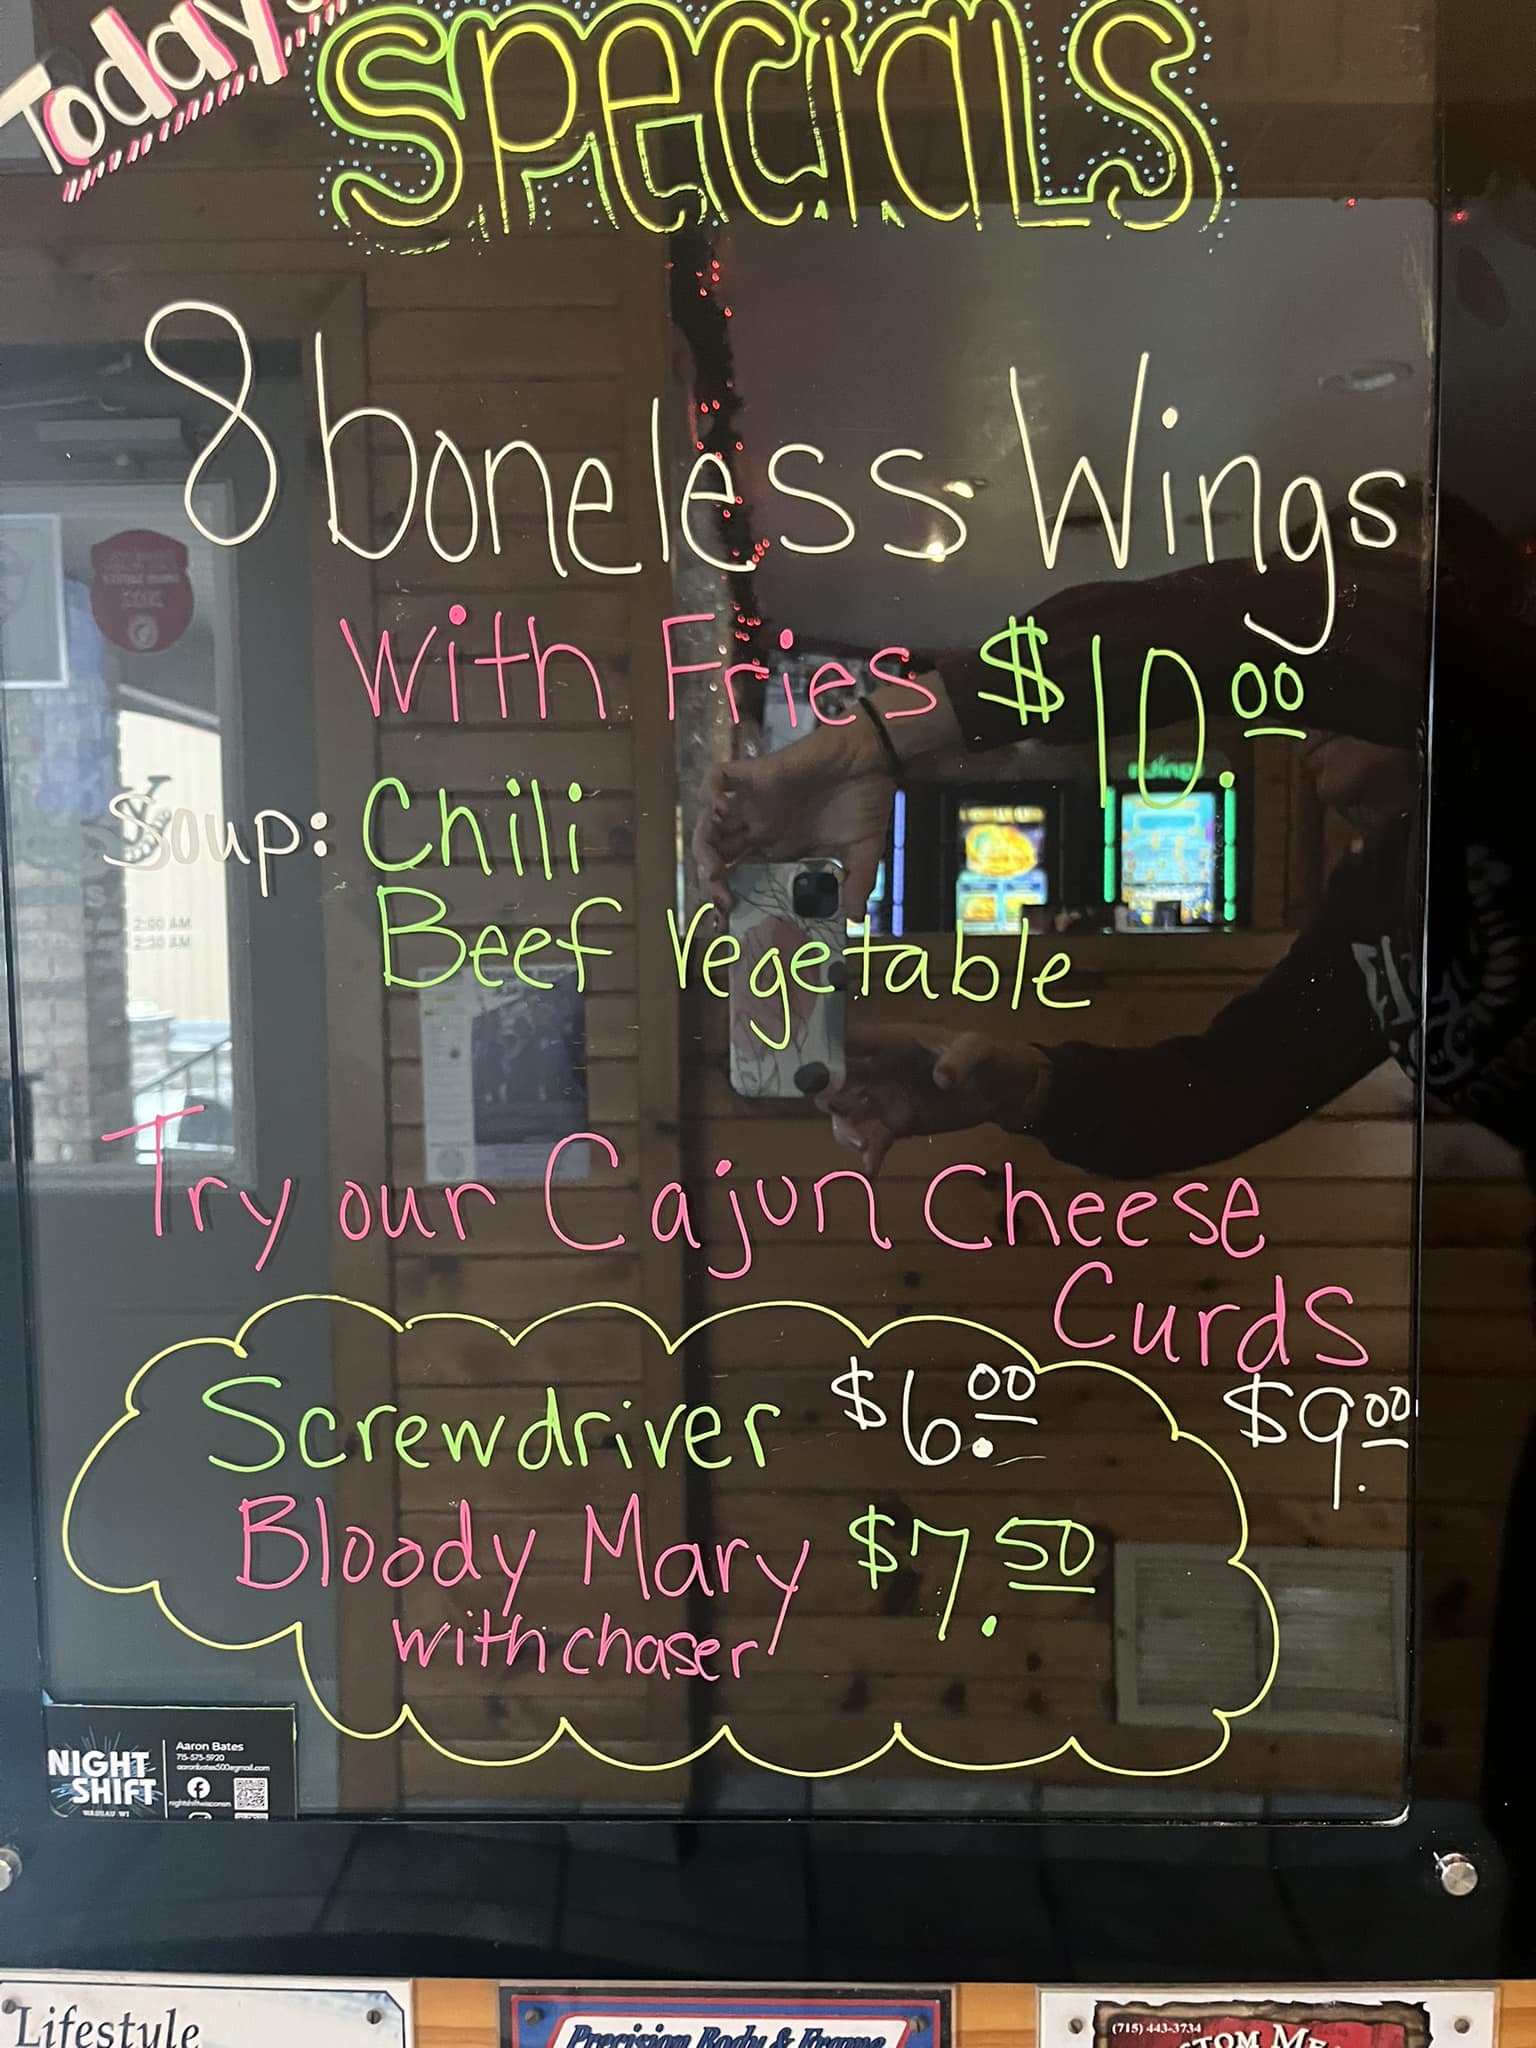 Today's
Specials
8 boneless Wings
With Fries $10.00
Soup: Chili
Beef Vegetable
Try our Cajun Cheese
Curds
$9.00
Screwdriver $6.00
Bloody Mary $7.50
with chaser
2:00 AM
2:30 AM
NIGHT
SHIFT
WAUSAU WI
Aaron Bates
715-573-5920
aaronbates500@gmail.com
nightshiftwisconsin
Lifestyle
Precision Body & Frame
(715) 443-3734